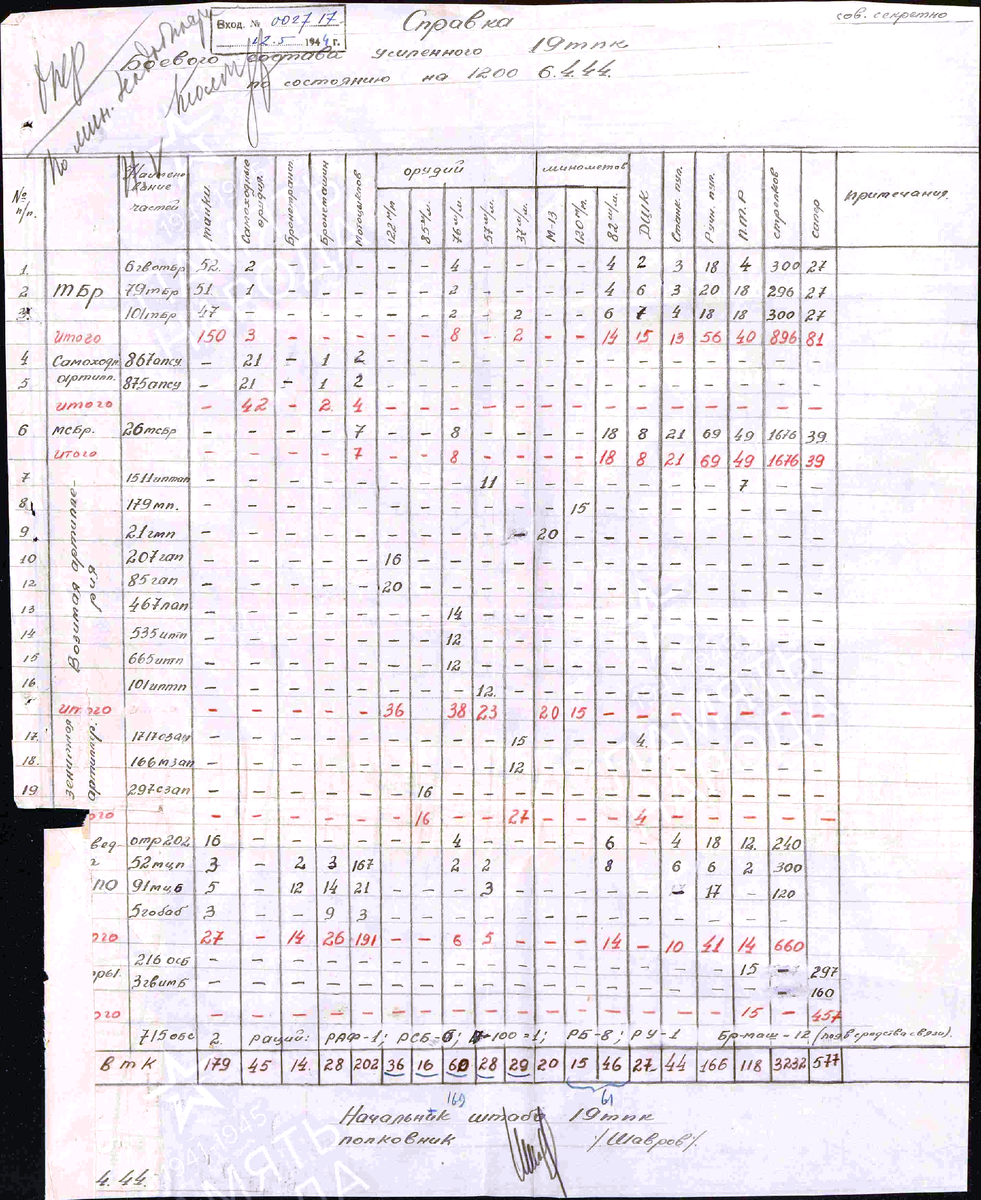 сов. секретно
Вход. № 002717
12.5 1944 г.
Справка
Боевого состава усиленного 19тпк
по состоянию на 1200 6.4.44.
№ п/п. Наименование частей танки. Самоходные орудия. Бронетрансп. Бронемашин Мотоциклов орудий 122 м/м 85 м/м. 76 м/м. 57 м/м. 37 м/м. минометов М-13 120 м/м. 82 м/м. ДШК Станк. пул. Ручн. пул. П.Т.Р стрелков сапр примечания.
1. 6гвотбр 52. 2 - - - - - 4 - - - - 4 2 3 18 4 300 27
2 ТБр 79тбр 51. 1 - - - - - 2 - - - - 4 6 3 20 18 296 27
3. 101тбр 47 - - - - - - 2 - 2 - - 6 7 4 18 18 300 27
итого 150 3 - - - - - 8 - 2 - - 14 15 13 56 40 896 81
4 Самоходн 867апсу - 21 - 1 2 - - - - - - - - - - - - - -
5 артилл. 875апсу - 21 - 1 2 - - - - - - - - - - - - - -
итого - 42 - 2. 4 - - - - - - - - - - - - - -
6 мсбр. 26мсбр - - - - 7 - - 8 - - - - 18 8 21 69 49 1676 39
итого - - - - 7 - - 8 - - - - 18 8 21 69 49 1676 39
7 1511иптап - - - - - - - - 11 - - - - - - - 7 - -
8 179мп. - - - - - - - - - - - 15 - - - - - - -
9 21гмп - - - - - - - - - - 20 - - - - - - - -
10 207гап - - - - - 16 - - - - - - - - - - - - -
12 85гап - - - - - 20 - - - - - - - - - - - - -
13 467лап - - - - - - - 14 - - - - - - - - - - -
14 535иптп - - - - - - - 12 - - - - - - - - - - -
15 665иптп - - - - - - - 12 - - - - - - - - - - -
16 101иптп - - - - - - - - 12. - - - - - - - - - -
итого - - - - - 36 38 23 20 15 - - - - - - -
17. зенитная артиллер. 1717озап - - - - - - - - - 15 - - - 4. - - - - -
18. 166мзап - - - - - - - - - 12 - - - - - - - - -
19 297сзап - - - - - - 16 - - - - - - - - - - - -
ого - - - - - - 16 - - 27 - - - 4 - - - - -
вед- отр202 16 - - - - - - 4 - - - - 6 - 4 18 12. 240
52мцп 3 - 2 3 167 - - 2 2 - - - 8 6 6 2 300
91мцб 5 - 12 14 21 - - - 3 - - - - - - 17 - 120
3 - - 9 3 - - - - - - - - - - - - -
ого 27 - 14 26 191 - - 6 5 - - - 14 - 10 41 14 660
216 осб - - - - - - - - - - - - - - - - 15 - 297
3гвитб - - - - - - - - - - - - - - - - - - 160
ого - - - - - - - - - - - - - - - - 15 - 457
715обс 2. раций: РАФ-1; РСБ-6; РБ-8; РУ-1 Бр-маш-12
В ТК 179 45 14. 28 202 36 16 60 28 29 20 15 46 27 44 166 118 3232 577
169 61
Начальник штаба 19тпк
полковник /Шавров/.
4.44.